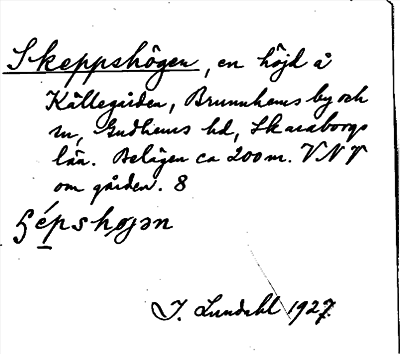 Skeppshögen, en höjd å
Källegården, Brunnhems by och
sn, Gudhems hd, Skaraborgs
län. Belägen ca 200 m. VNV
om gården. 8
ʃépshøjən
J. Lundahl 1927.